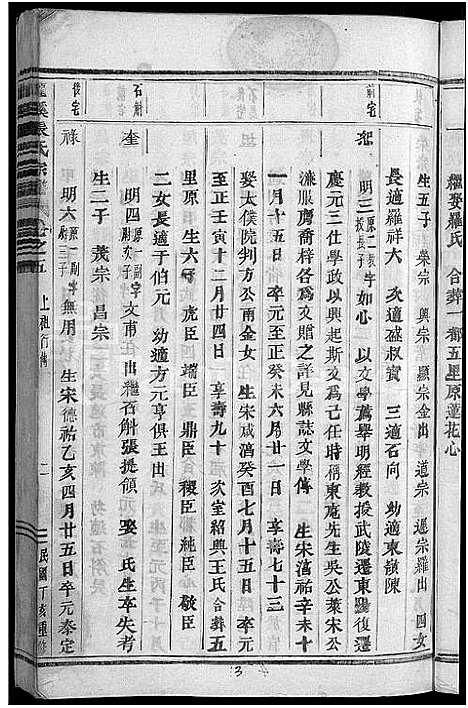 繼娶羅氏 合葬一都五里原蓮花心
生五子 榮宗 興宗 顯宗金出 道宗 遲宗羅出 四女
長適羅祥大 次適盛叔寶 三適石向 幼適東嶺陳
前宅
明三 原二教字 如心 以文學薦舉明經教授武陵遷東陽復遷
慶元三仕學政以興起斯文為己任時稱東庵先生吳公萊宋公
濂服膺喬梓各為文贈之詳見縣誌文學傳 生宋淳祐辛未十
一月十五日 卒元至正癸未六月廿一日 享壽七十三
娶太僕院判方公南金女 生宋咸淳癸酉七月十五日 卒元
至正壬寅十二月廿四日 享壽九十 次室紹興王氏 合葬五
里原 生六子 虎臣 垢臣 鼎臣 稷臣 純臣 敬臣
二女長適于伯元 幼適方元亨俱王出
石斛
奎
明四 原一副字 文甫 出繼石斛張提領 娶 氏生卒失考
生二子 茂宗 昌宗
後宅
祿
明六 原一副字 無用 生宋德祐乙亥四月廿五日卒元泰定
龍溪張氏宗譜
卷之五
上祖行傳
二
民國丁亥重修
3